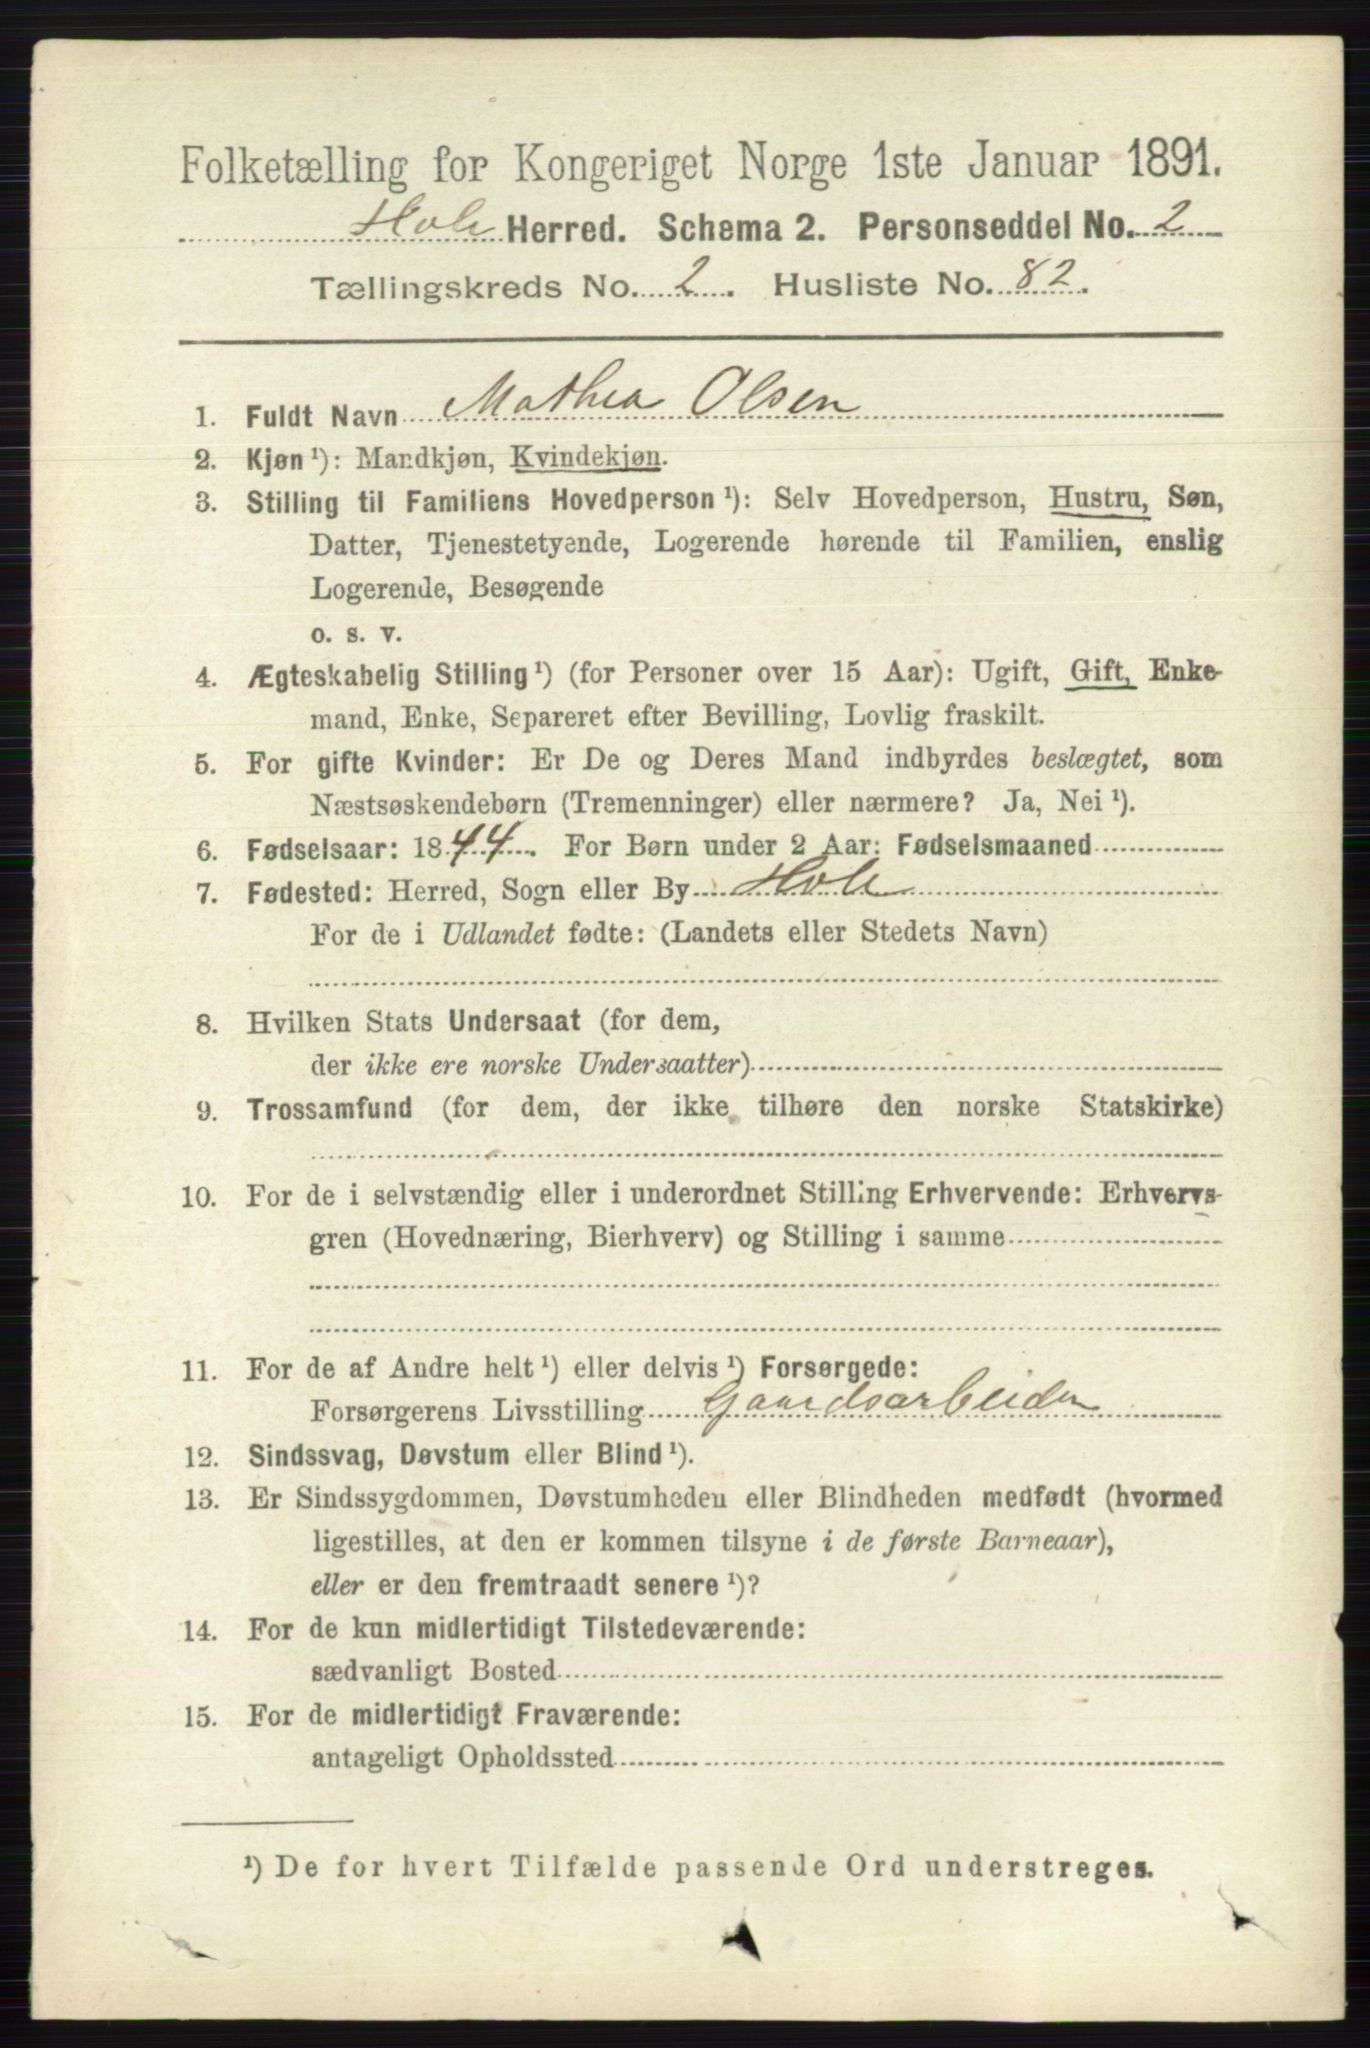 Folketælling for Kongeriget Norge 1ste Januar 1891.
Hole Herred. Schema 2. Personseddel No. 2
Tællingskreds No. 2. Husliste No. 82.
1. Fuldt Navn Mathea Olsen
2. Kjøn ¹): Mandkjøn, Kvindekjøn.
3. Stilling til Familiens Hovedperson ¹): Selv Hovedperson, Hustru, Søn,
Datter, Tjenestetyende, Logerende hørende til Familien, enslig
Logerende, Besøgende
o. s. v.
4. Ægteskabelig Stilling ¹) (for Personer over 15 Aar): Ugift, Gift, Enke-
mand, Enke, Separeret efter Bevilling, Lovlig fraskilt.
5. For gifte Kvinder: Er De og Deres Mand indbyrdes beslægtet, som
Næstsøskendebørn (Tremenninger) eller nærmere? Ja, Nei ¹).
6. Fødselsaar: 1844. For Børn under 2 Aar: Fødselsmaaned
7. Fødested: Herred, Sogn eller By Hole
For de i Udlandet fødte: (Landets eller Stedets Navn)
8. Hvilken Stats Undersaat (for dem,
der ikke ere norske Undersaatter)
9. Trossamfund (for dem, der ikke tilhøre den norske Statskirke)
10. For de i selvstændig eller i underordnet Stilling Erhvervende: Erhvervs-
gren (Hovednæring, Bierhverv) og Stilling i samme
11. For de af Andre helt ¹) eller delvis ¹) Forsørgede:
Forsørgerens Livsstilling Gaardsarbeider
12. Sindssvag, Døvstum eller Blind ¹).
13. Er Sindssygdommen, Døvstumheden eller Blindheden medfødt (hvormed
ligestilles, at den er kommen tilsyne i de første Barneaar),
eller er den fremtraadt senere ¹)?
14. For de kun midlertidigt Tilstedeværende:
sædvanligt Bosted
15. For de midlertidigt Fraværende:
antageligt Opholdssted
¹) De for hvert Tilfælde passende Ord understreges.